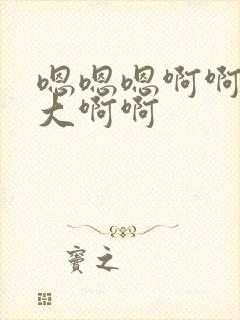 嗯嗯嗯啊啊
大啊啊
窦之